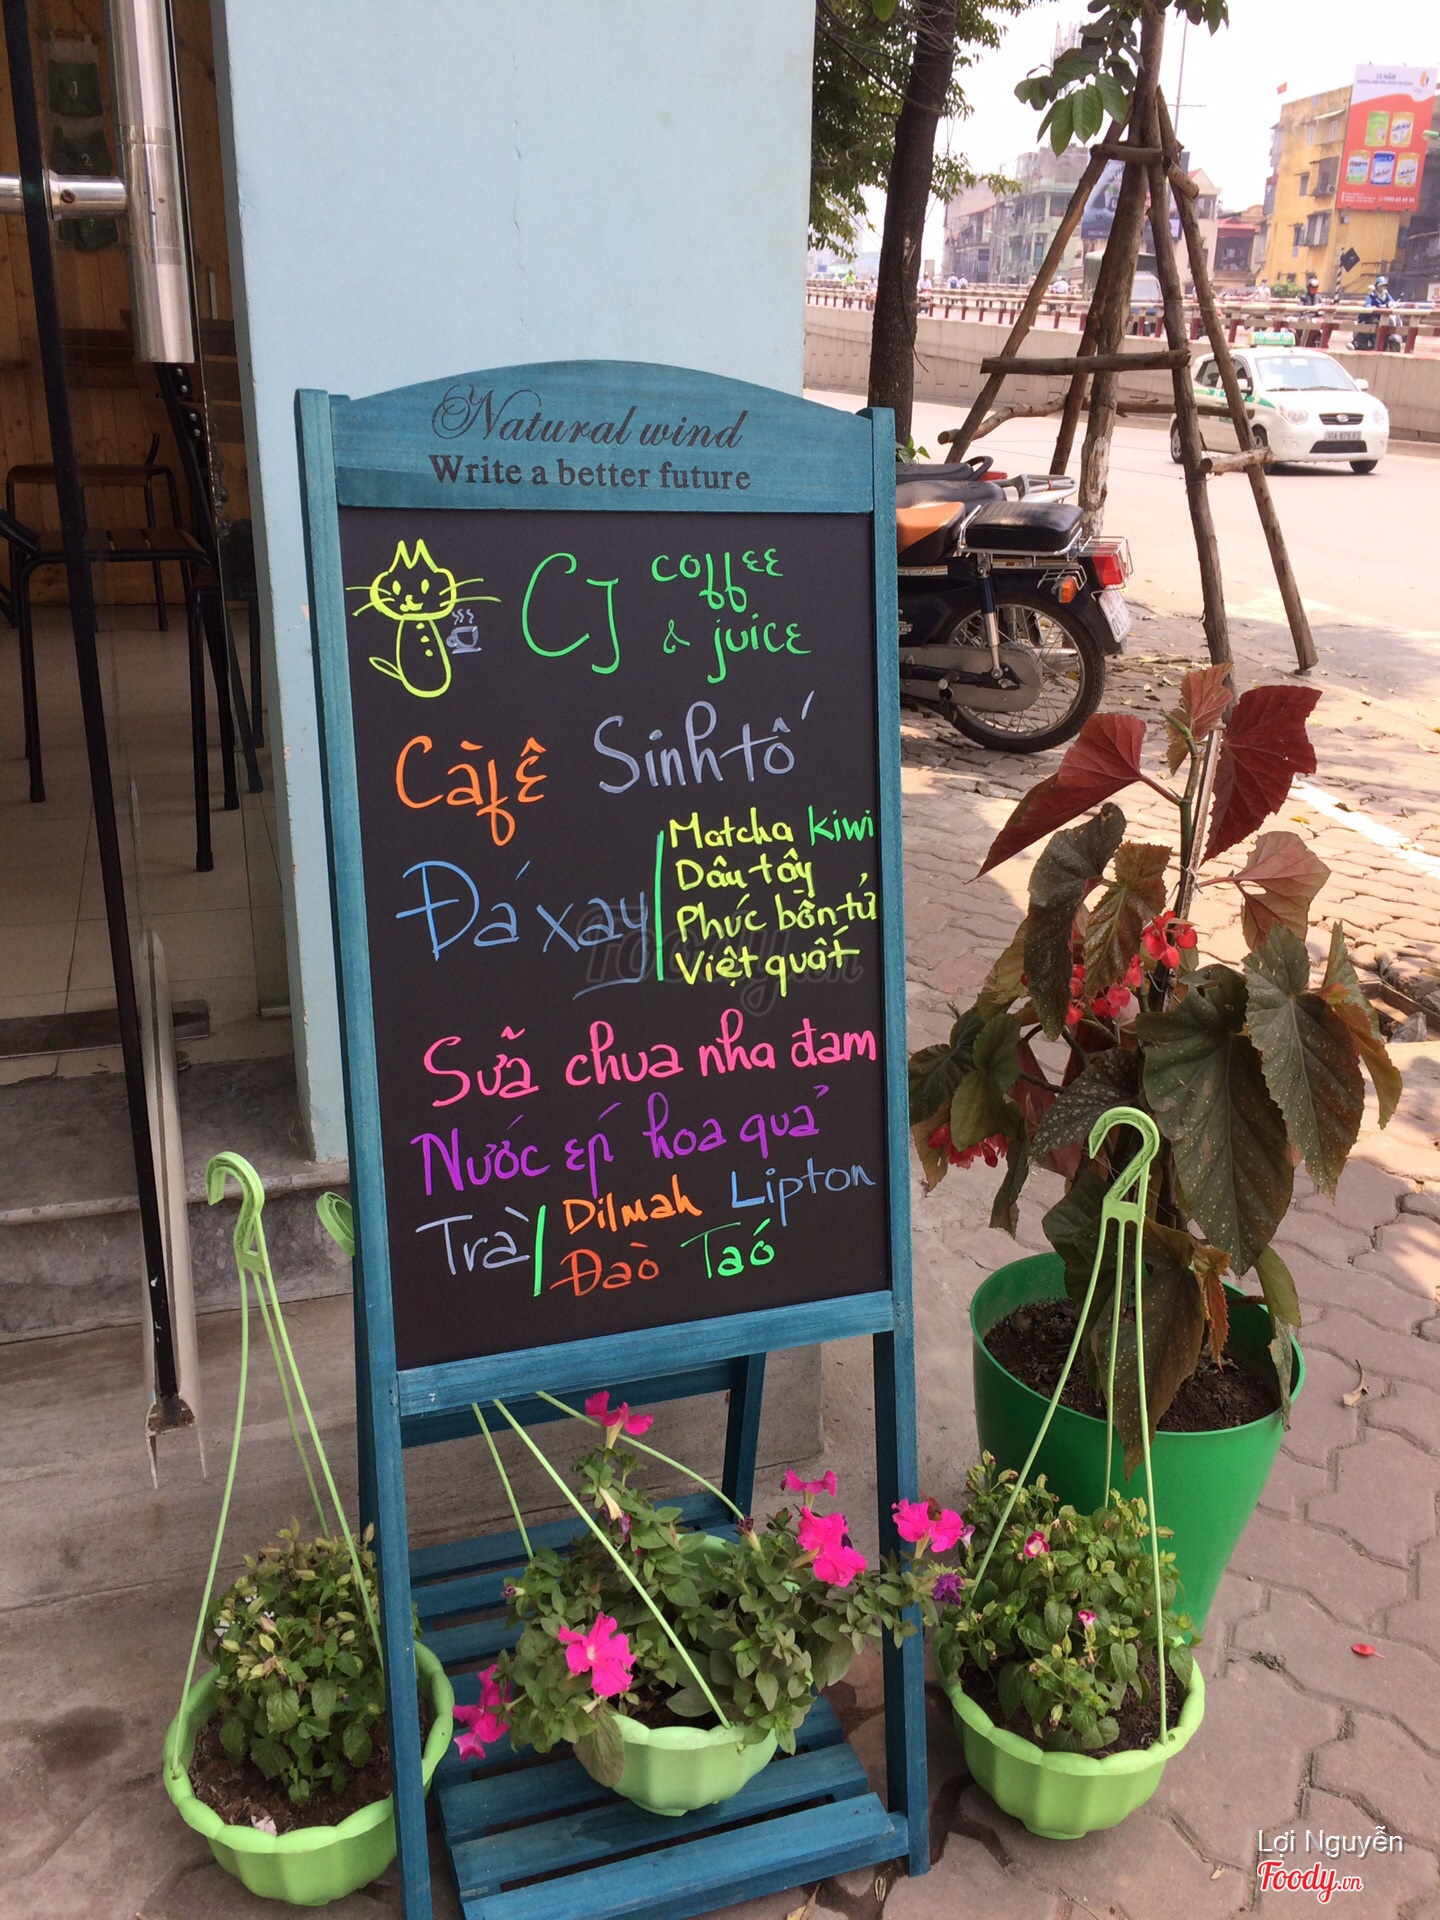 Natural wind
Write a better future
CJ coffee
& juice
Càfê Sinh tố
Đá xay
Matcha kiwi
Dâu tây
Phúc bồn tử
Việt quất
Sữa chua nha đam
Nước ép hoa quả
Trà
Dilmah Lipton
Đào Táo
Foody.vn
Lợi Nguyễn
Foody.vn